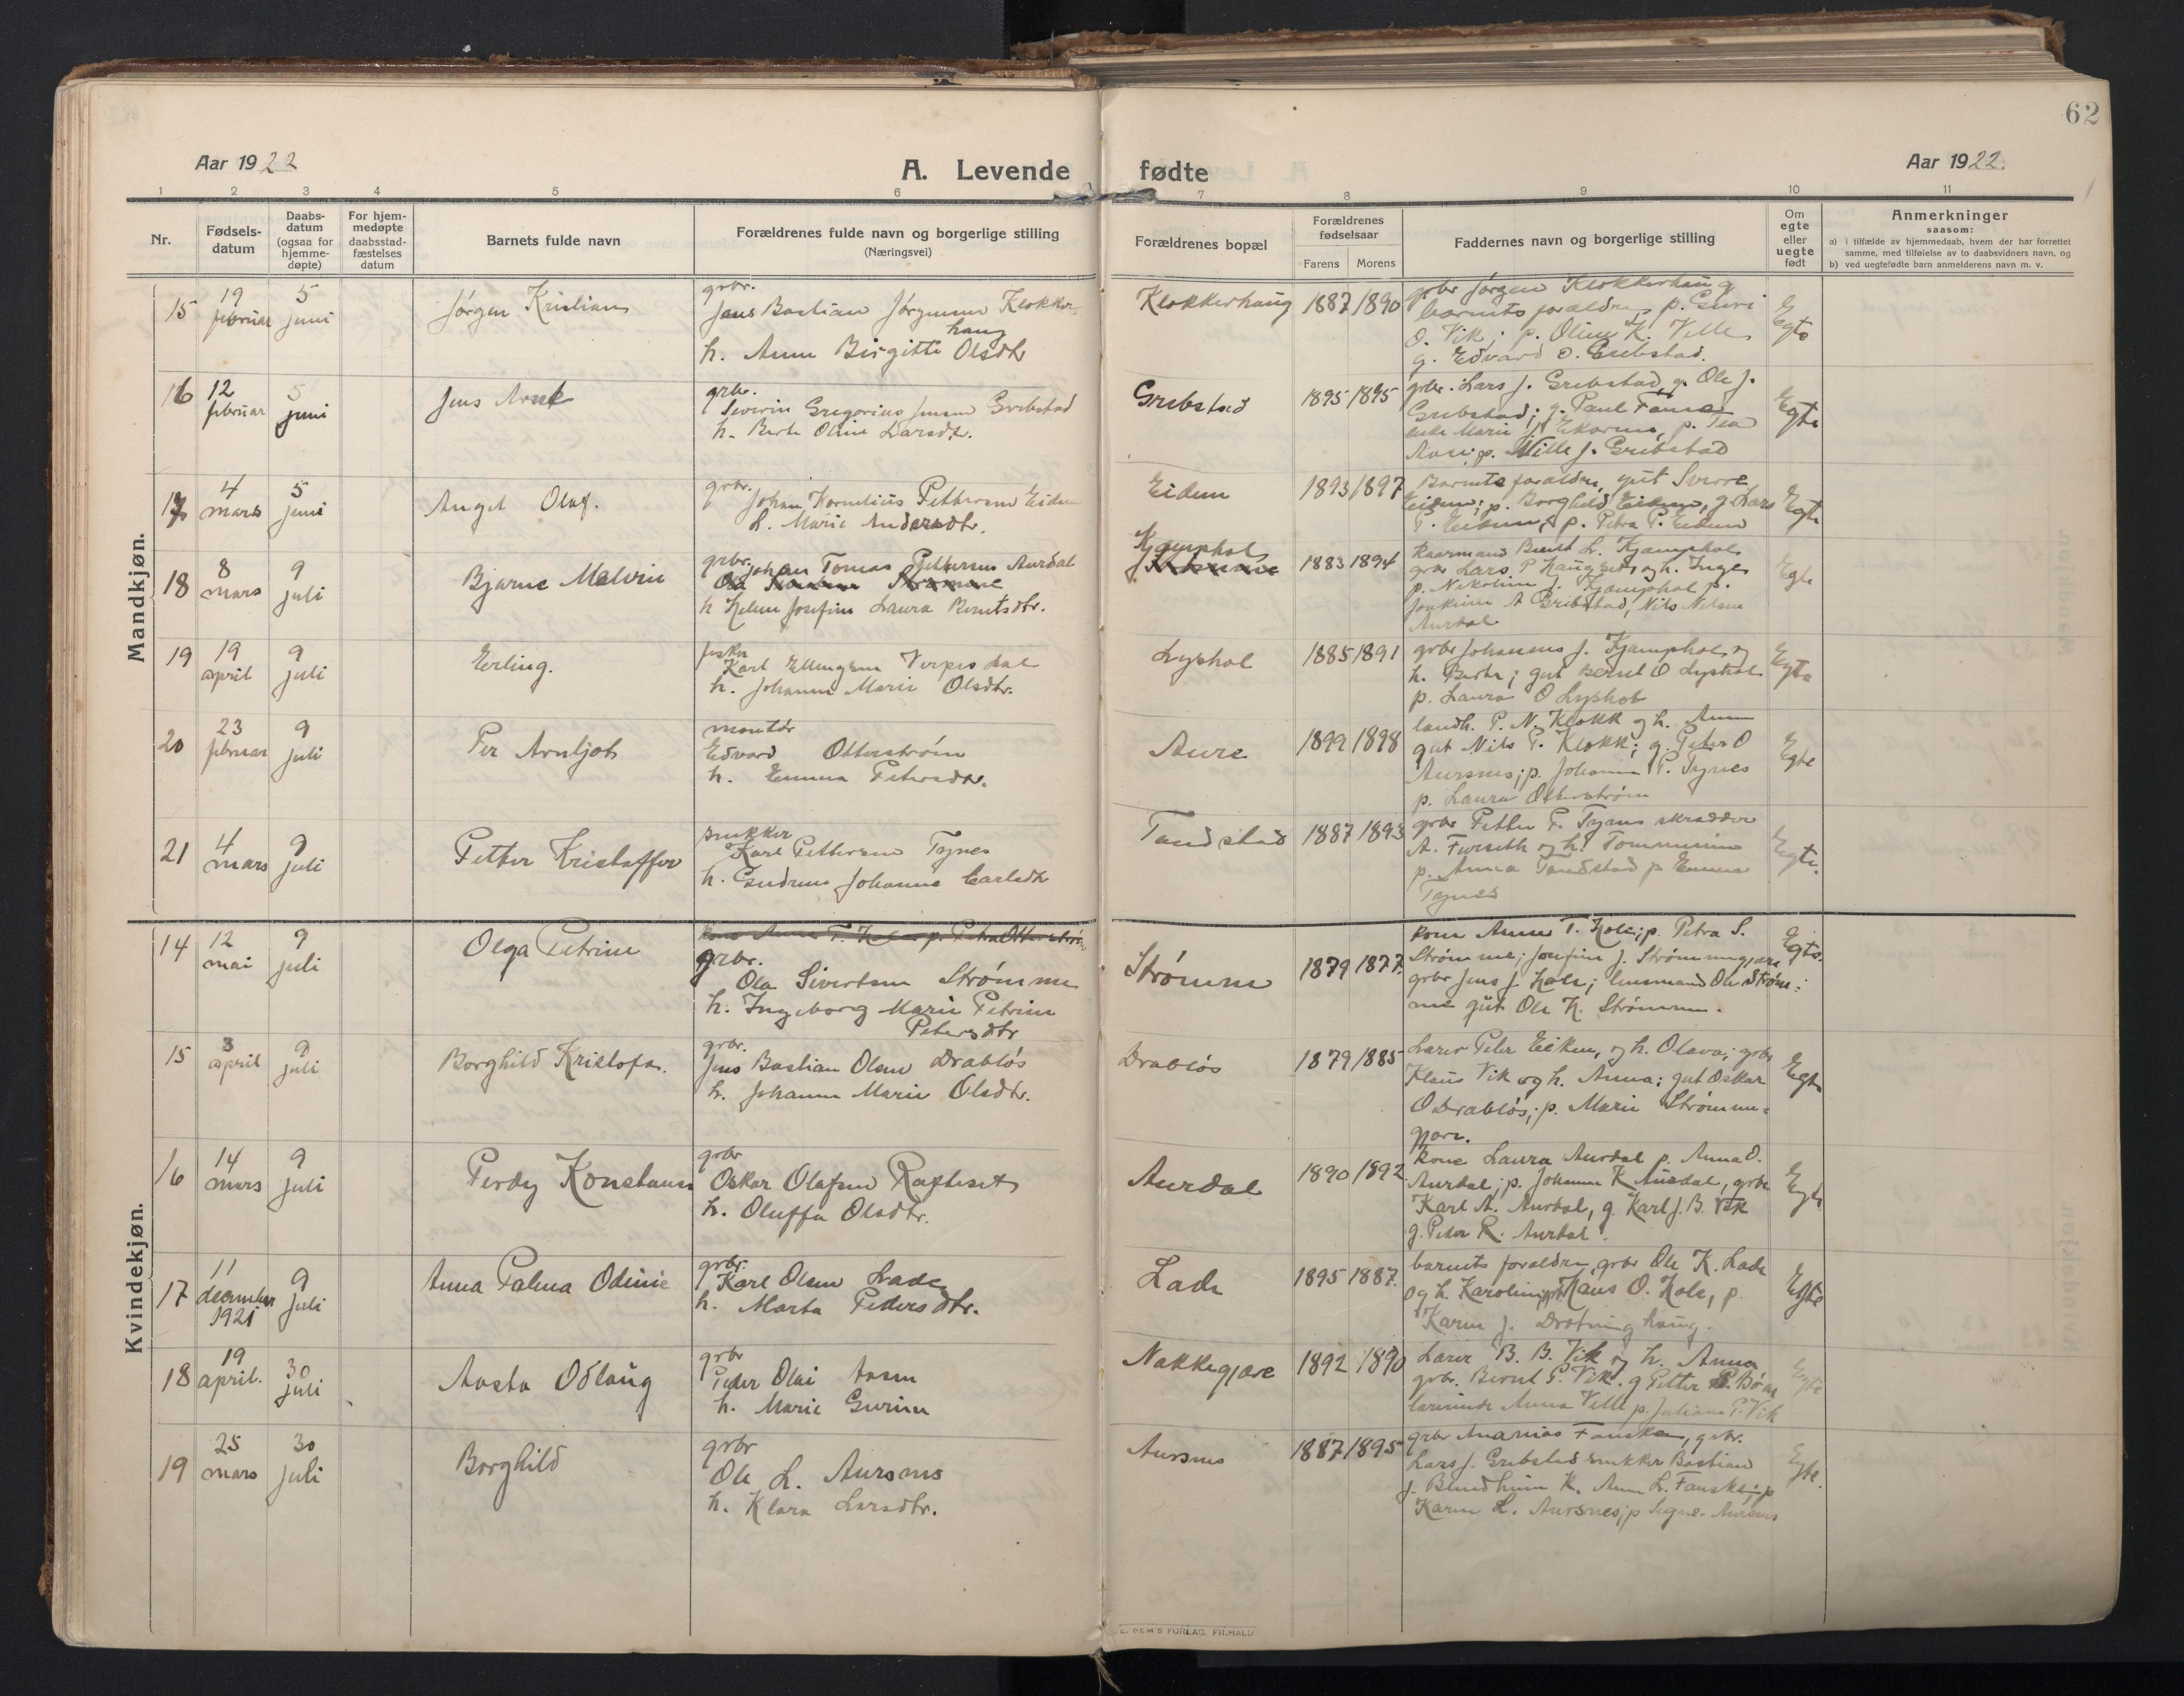 62
Aar 1922
A. Levende fødte
Aar 1922.
1 2 3 4 5 6 7 8 9 10 11
Nr.
Fødsels-
datum
Daabs-
datum
(ogsaa for
hjemme-
døpte)
For hjem-
medøpte
daabsstad-
fæstelses
datum
Barnets fulde navn
Forældrenes fulde navn og borgerlige stilling
(Næringsvei)
Forældrenes bopæl
Forældrenes
fødselsaar
Farens Morens
Faddernes navn og borgerlige stilling
Om
egte
eller
uegte
født
Anmerkninger
saasom:
a) i tilfælde av hjemmedaab, hvem der har forrettet
samme, med tilføielse av to daabsvidners navn, og
b) ved uegtefødte barn anmelderens navn m. v.
Mandkjøn.
15 19 februar 5 juni
Jørgen Kristian
grbr.
Jens Bastian Jørgensen Klokker-
haug
h. Anna Birgitte Olsdtr
Klokkerhaug 1887 1890
grbr Jørgen Klokkerhaug
barnets forældre, p. Guri
O. Vik; p. Oline K. Velle
g. Edvard O. Grebstad.
Egte
16 12 februar 5 juni
Jens Arnt
grbr.
Severin Gregorius Jensen Grebstad
h. Berte Oline Larsdtr.
Grebstad 1895 1895
grbr. Lars J. Grebstad, g. Ole J.
Grebstad; g. Paul
enke Marie Ekornes, p. Tea
p. Mille J. Grebstad
Egte
17 4 mars 5 juni
Angel Olaf.
grbr.
Johan Kornelius Pettersen Eidem
h. Marie Andersdtr.
Eidem 1893 1897
Barnets forældre, gut Sverre
Eidem; p. Borghild Eidem, g. Lars
P. Eidem, p. Petra P. Eidem
Egte
18 8 mars 9 juli
Bjarne Malvin
grbr. Johan Tomas Pettersen Aurdal
h Helene Josefine Laura Berntsdtr.
Kjemphol
1883 1894
kaarmand Bernt L. Kjemphol
grbr Lars P Haugset, og h. Inge
p. Nikoline J. Kjemphol p.
Joakim A Grebstad, Nils Nelsen
Aurdal
Egte
19 19 april 9 juli
Erling.
fisker
Karl Ellingsen Verpesdal
h. Johanne Marie Olsdtr.
Lyshol 1885 1891
grbr Johannes J. Kjemphol og
h. Berte; gut Bernt O Lyshol
p. Laura O Lyshol
Egte
20 23 februar 9 juli
Per Arnljot
montør
Edvard Otterstrøm
h. Emma Petersdtr.
Aure 1899 1898
landh. P. N. Klokk og h. Anna
gut Nils P. Klokk; g. Peter O
Aursnes; p. Johanne P. Tynes
p. Laura Otterstrøm
Egte
21 4 mars 9 juli
Petter Kristoffer
snekker
Karl Pettersen Tynes
h. Gudrun Johanne Carlsdtr
Tandstad 1887 1893
grbr Petter P. Tynes skrædder
A. Furseth og h. Tommine
p. Anna Tandstad p Emma
Tynes
Egte.
Kvindekjøn.
14 12 mai 9 juli
Olga Petrine
kone Anne T. Hole; p. Petra Otterstrøm
grbr.
Ola Sivertsen Strømme
h. Ingeborg Marie Petrine
Petersdtr
Strømme 1879 1877.
kone Anne T. Hole; p. Petra S.
Strømme; Josefine J. Strømmegjære
grbr Jens J. Hole; lensmand Ole Strøm-
me gut Ole K. Strømme.
Egte.
15 3 april 9 juli
Borghild Kristofa.
grbr.
Jens Bastian Olsen Drabløs
h. Johanne Marie Olsdtr.
Drabløs 1879 1885
Lærer Peter Eiken, og h. Olava; grbr
Klaus Vik og h. Anna; gut Oskar
O Drabløs; p. Marie Strømme-
gjære.
Egte
16 14 mars 9 juli
Perdy Konstanse
grbr
Oskar Olafsen Rafteset
h. Oluffa Olsdtr.
Aurdal 1890 1892
kone Laura Aurdal p. Anna O.
Aurdal; p. Johanne K Aurdal, grbr
Karl A. Aurdal, g. Karl J. B. Vik
g. Peter R. Aurdal.
Egte
17 11 december 1921 9 juli
Anna Palma Odinie
grbr.
Karl Olsen Lade
h. Marta Pedersdtr.
Lade 1895 1887.
barnets forældre, grbr Ole K. Lade
og h. Karoline; Hans O. Hole, p.
Karen J. Drotninghaug.
Egte
18 19 april. 30 juli
Aasta Odlaug
grbr
Peder Olai Aasen
h. Marie Gurine
Nakkegjære 1892 1890
Lærer B. B. Vik og h. Anna
grbr. Bernt P. Vik. g Petter Bøe
lærerinde Anna Velle p. Juliane P. Vik
Egte
19 25 mars 30 juli
Borghild
grbr
Ole L. Aursnes
h. Klara Larsdtr.
Aursnes 1887 1895
grbr Ananias Fauske, grbr.
Lars J. Grebstad snekker Bastian
J. Blindheim K. Anne L. Fauske; p
Karen L. Aursnes; p Signe Aursnes
Egte.
E. SEMS FORLAG. FR.HALD